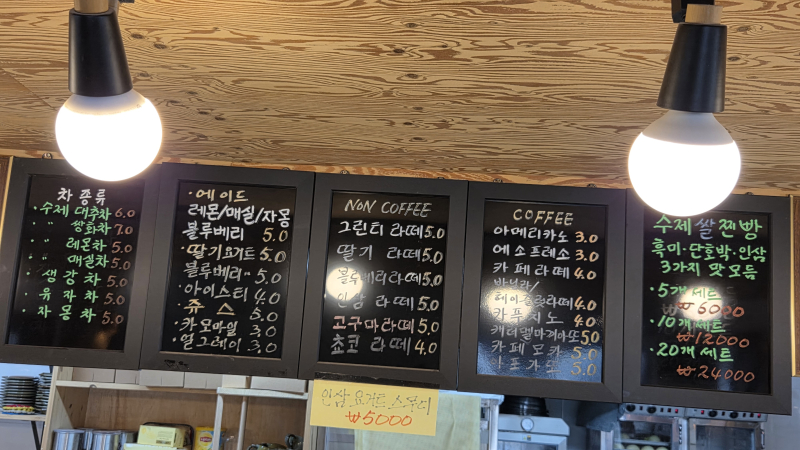 차 종류
· 수제 대추차 6.0
" 쌍화차 7.0
" 레몬차 5.0
" 매실차 5.0
· 생강차 5.0
· 유자차 5.0
· 자몽차 5.0
· 에이드
레몬/매실/자몽
블루베리 5.0
· 딸기요거트 5.0
블루베리 " 5.0
· 아이스티 4.0
· 쥬스 5.0
· 카모마일 3.0
· 얼그레이 3.0
NON COFFEE
그린티 라떼 5.0
딸기 라떼 5.0
블루베리라떼 5.0
인삼 라떼 5.0
고구마라떼 5.0
쵸코 라떼 4.0
COFFEE
아메리카노 3.0
에소프레소 3.0
카페라떼 4.0
바닐라/
헤이즐넛라떼 4.0
카푸치노 4.0
캬라멜마끼아또 5.0
카페모카 5.0
아포가토 5.0
수제 쌀 찐빵
흑미·단호박·인삼
3가지 맛 모듬
· 5개 세트
₩6000
· 10개 세트
₩12000
· 20개 세트
₩24000
인삼 요거트 스무디
₩5000